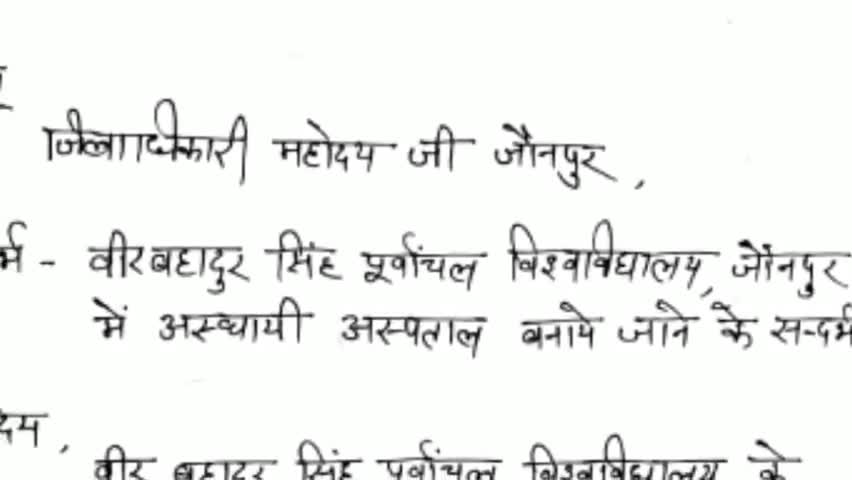 जिलाधीकारी महोदय जी जौनपुर,
र्भ - वीर बहादुर सिंह पूर्वांचल विश्वविद्यालय, जौनपुर
में अस्थायी अस्पताल बनाये जाने के सन्दर्भ
दय,
वीर बहादुर सिंह पूर्वांचल विश्वविद्यालय के